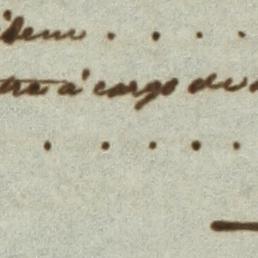 idem . . . .
tra a' cargo de
. . . . .